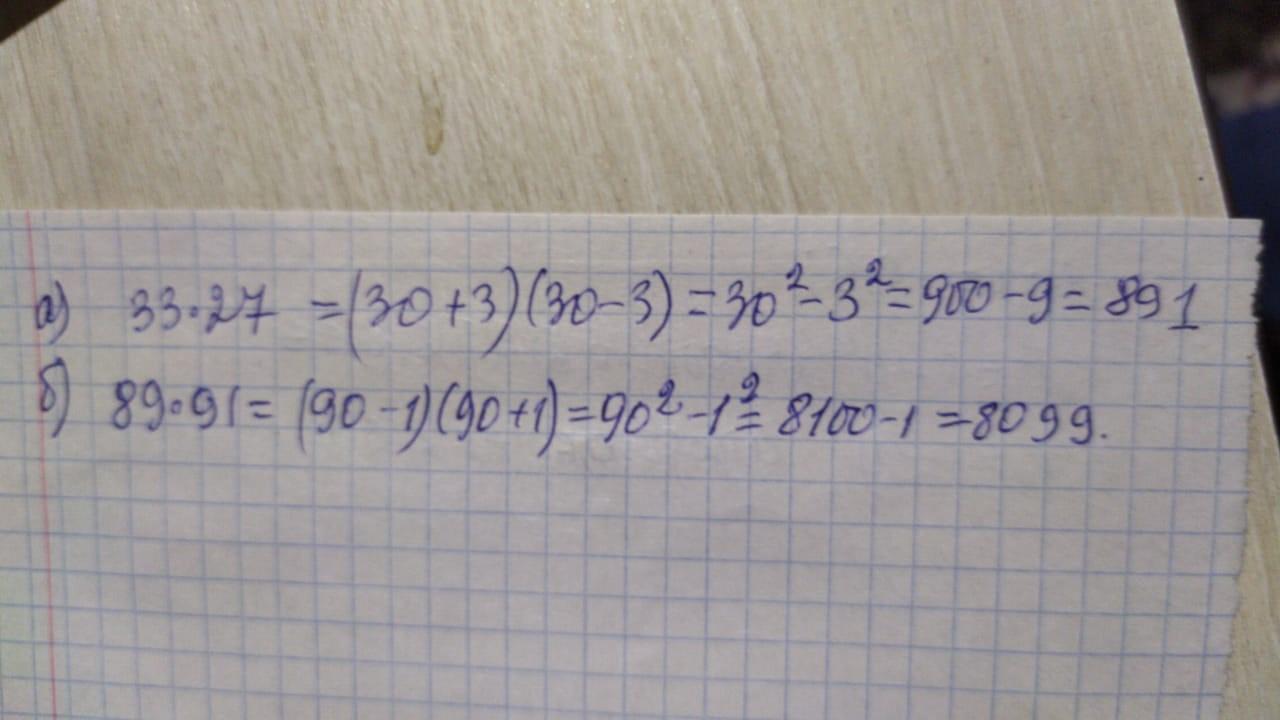 а) 33·27 =(30+3)(30-3)=30²-3²=900-9=891
б) 89·91=(90-1)(90+1)=90²-1²=8100-1=8099.